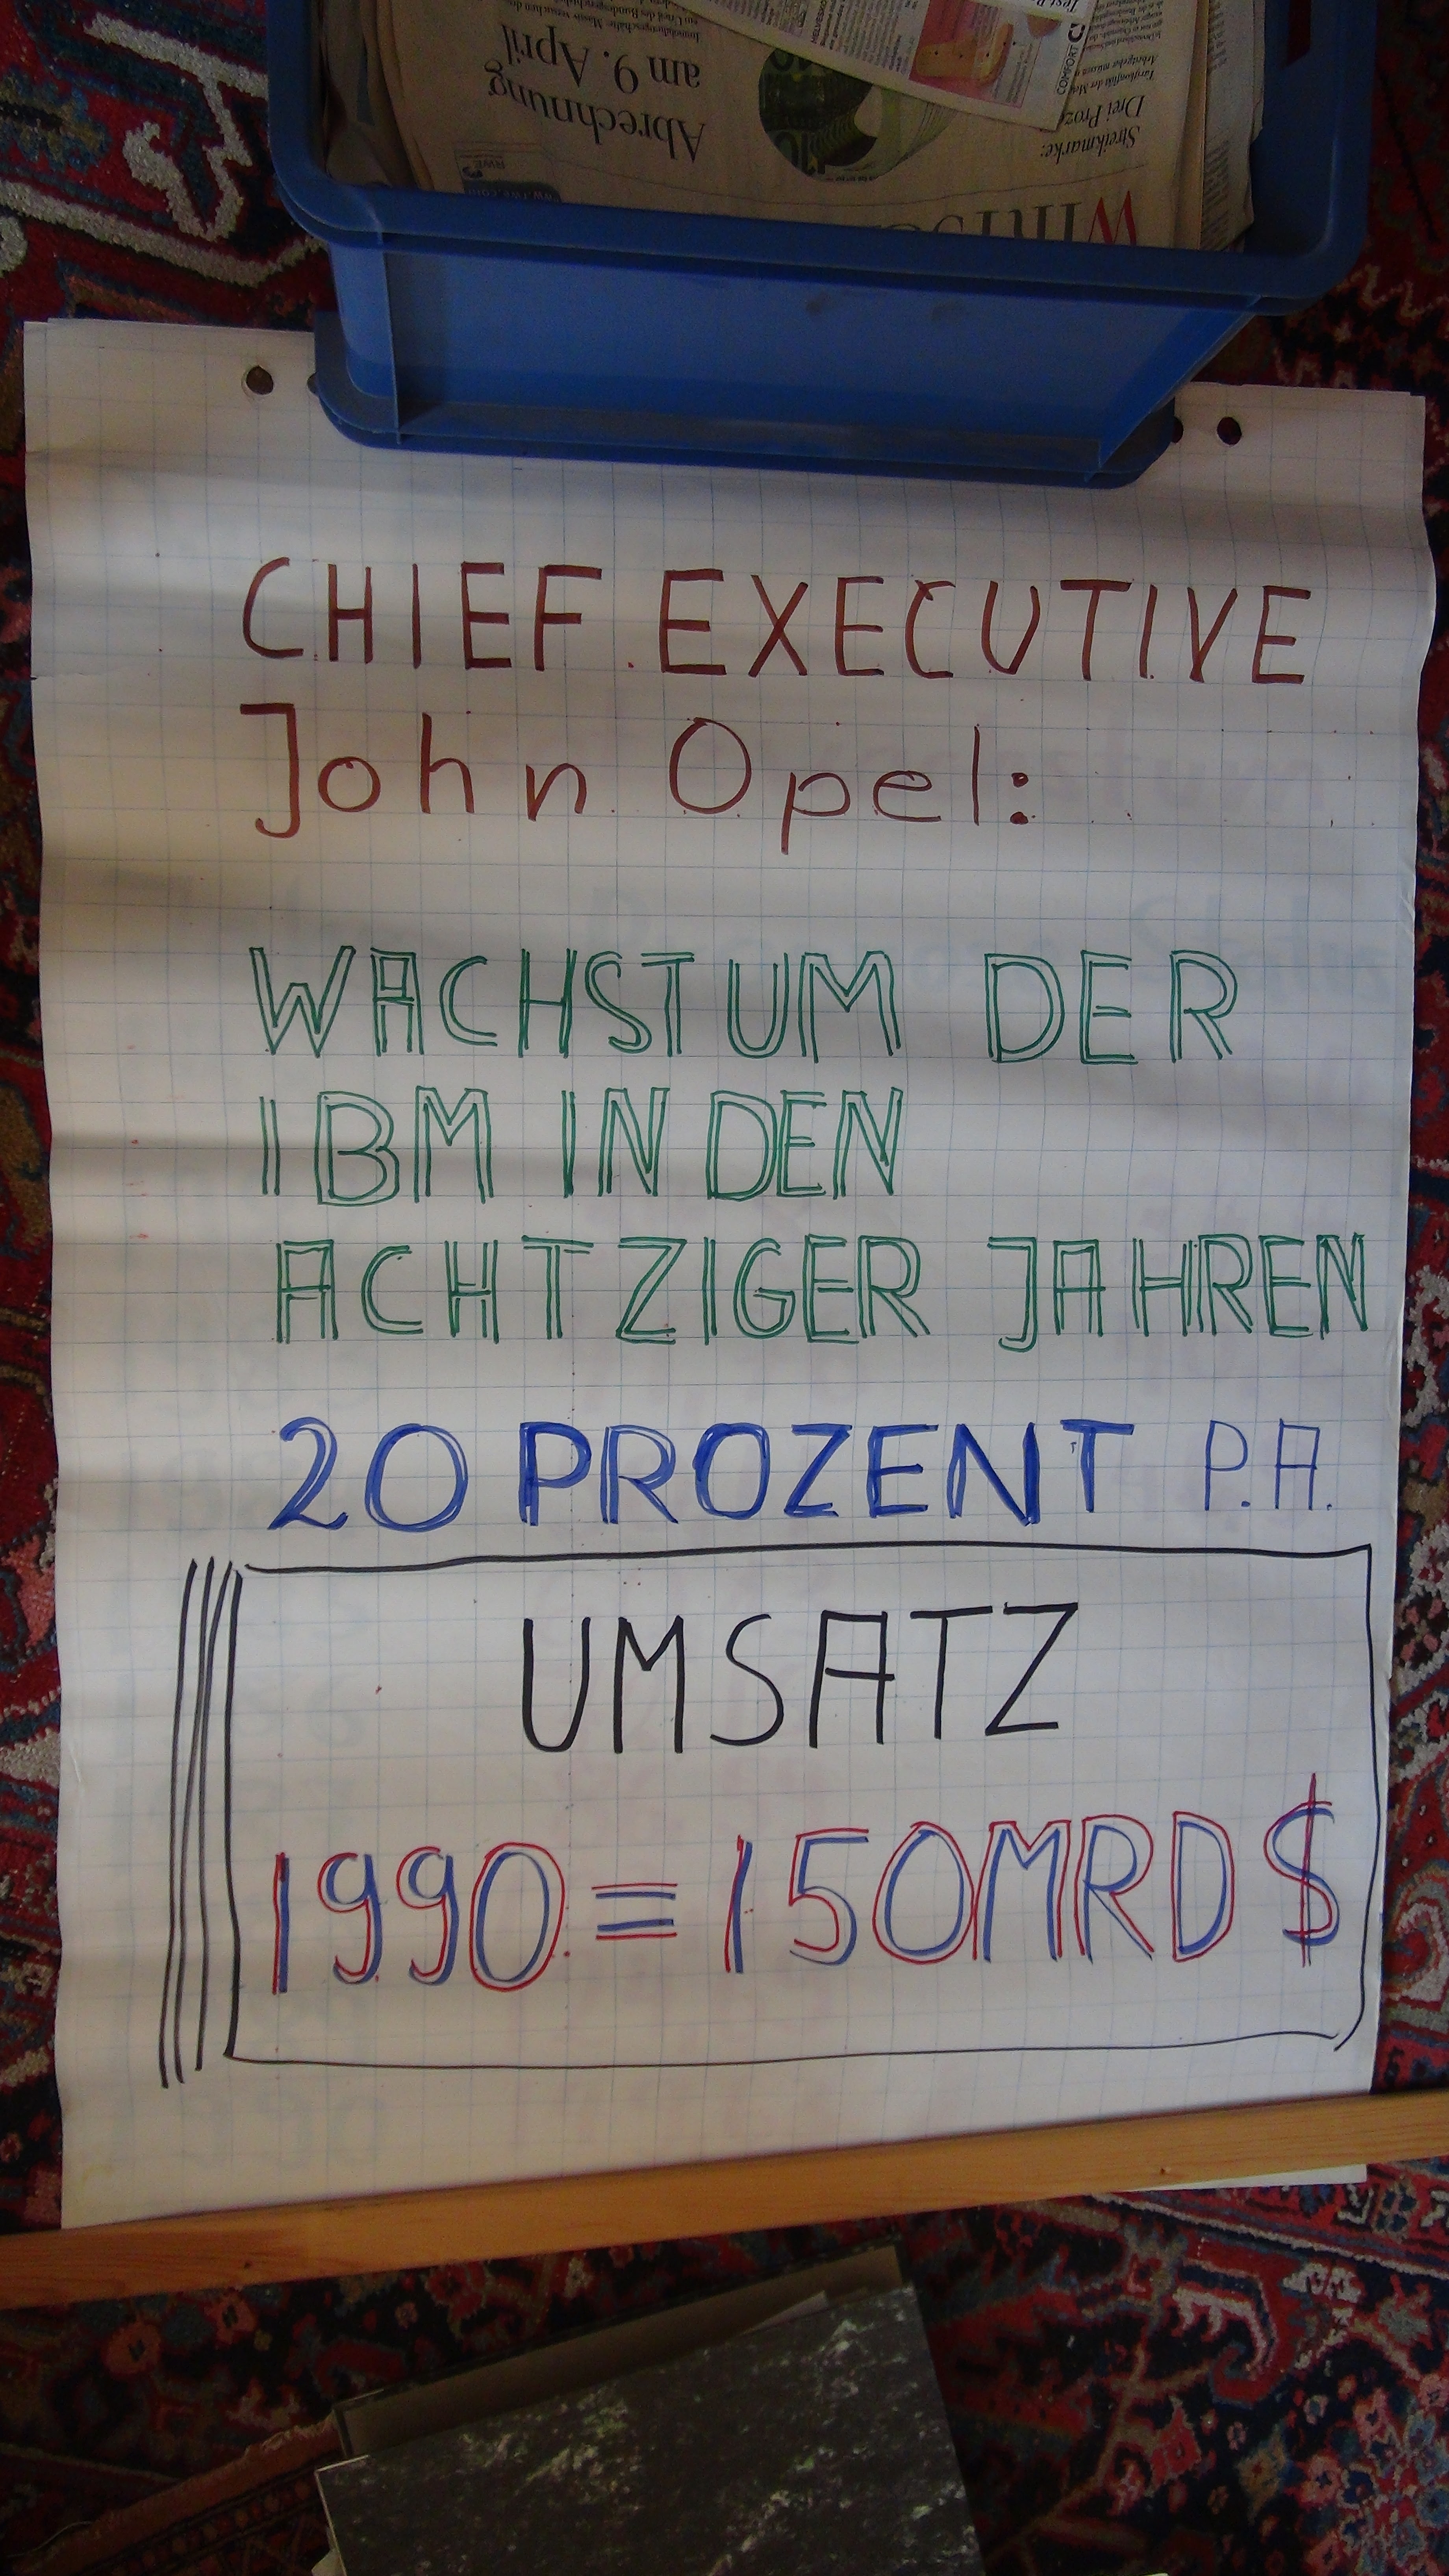 Abrechnung
am 9. April
Streikmarke:
COMFORT
CHIEF EXECUTIVE
John Opel:
WACHSTUM DER
IBM IN DEN
ACHTZIGER JAHREN
20 PROZENT P.A.
UMSATZ
1990 = 150 MRD $